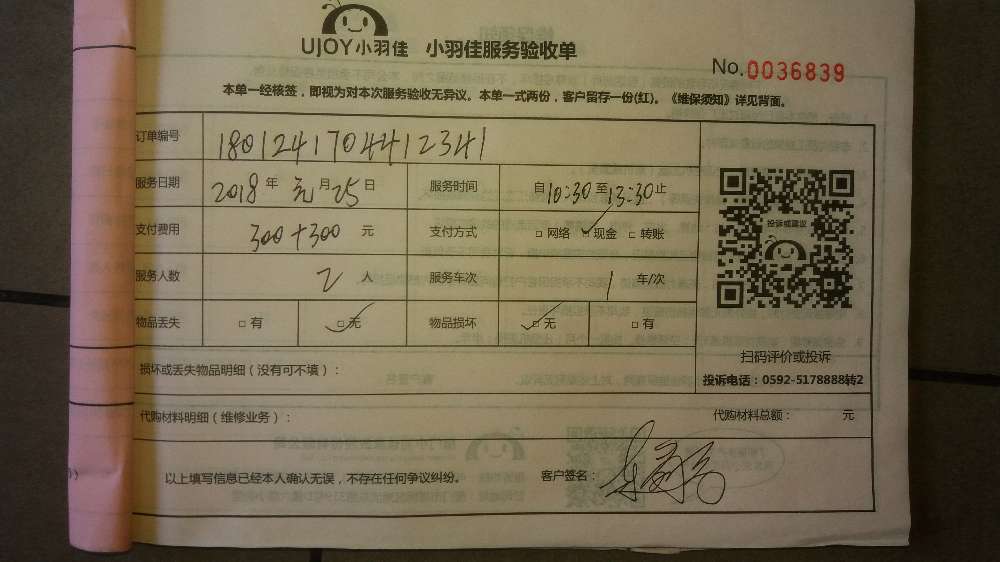 UJOY小羽佳 小羽佳服务验收单
No.0036839
本单一经核签，即视为对本次服务验收无异议。本单一式两份，客户留存一份(红)。《维保须知》详见背面。
订单编号 180124170441 2341
服务日期 2018 年 元 月 25 日 服务时间 自 10:30 至 13:30 止
投诉或建议
支付费用 300+300 元 支付方式 □ 网络 □ 现金 □ 转账
服务人数 2 人 服务车次 1 车/次
物品丢失 □ 有 □ 无 物品损坏 □ 无 □ 有
扫码评价或投诉
损坏或丢失物品明细（没有可不填）： 投诉电话：0592-5178888转2
代购材料明细（维修业务）： 代购材料总额： 元
以上填写信息已经本人确认无误，不存在任何争议纠纷。 客户签名：